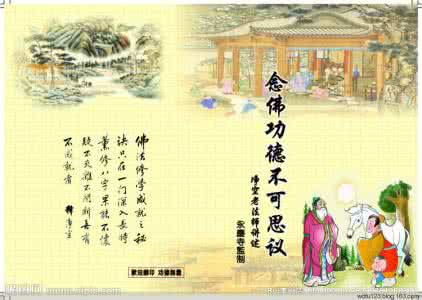 念佛功德不可思议
净空老法师讲述
永慶寺監制
佛法修学成就之秘
诀只在一门深入長時
薰修八字果能不懷
疑不夾雜不間斷未有
不成就者 釋净空
歡迎翻印 功德無量
wdtu123.blog.163.com